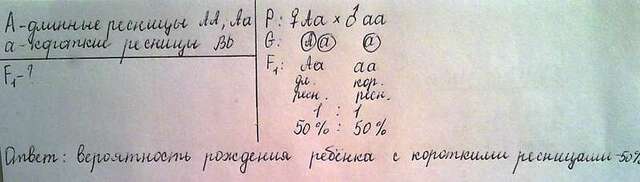 А-длинные ресницы АА, Аа
а-короткие ресницы Вb
F₁-?
Р: ♀Аа × ♂аа
G: А а а
F₁: Аа аа
дл. кор.
ресн. ресн.
1 : 1
50% : 50%
Ответ: вероятность рождения ребёнка с короткими ресницами-50%